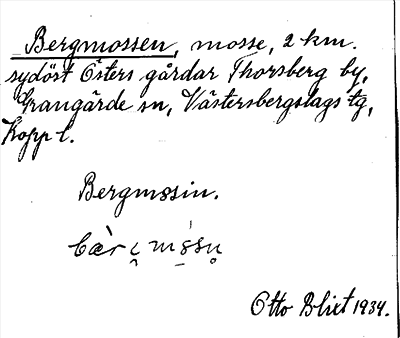 Bergmossen, mosse, 2 km.
sydöst Östers gårdar Thorsberg by,
Grangärde sn, Västerbergslags tg,
Kopp l.
Bergmossin.
Otto Blixt 1934.